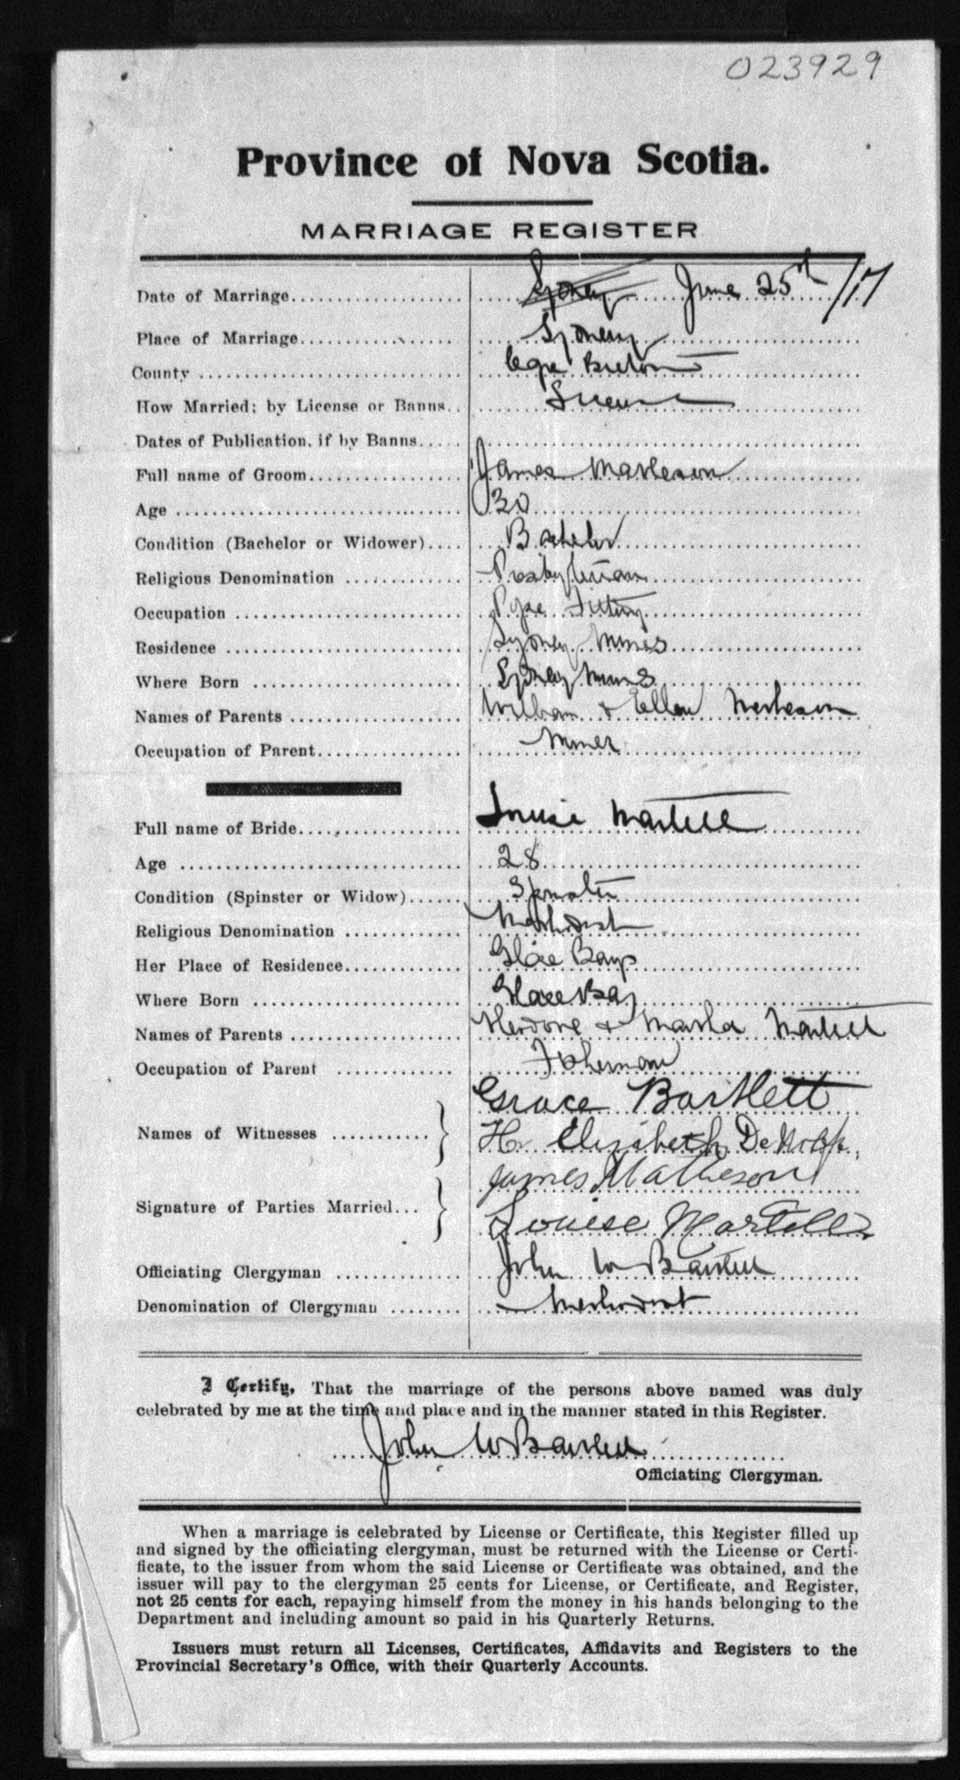 023929
Province of Nova Scotia.
MARRIAGE REGISTER
Date of Marriage.................... Sydney June 25th /17
Place of Marriage.................... Sydney
County .................... Cape Breton
How Married; by License or Banns.. License
Dates of Publication, if by Banns.....
Full name of Groom.................... James Matheson
Age .................... 30
Condition (Bachelor or Widower).... Bachelor
Religious Denomination ............ Presbyterian
Occupation .................... Pipe Fitting
Residence .................... Sydney Mines
Where Born .................... Sydney Mines
Names of Parents .................... William & Ellen Matheson
Occupation of Parent.................... Miner
Full name of Bride.................... Louise Martell
Age .................... 28
Condition (Spinster or Widow)...... Spinster
Religious Denomination ............ Methodist
Her Place of Residence............ Glace Bay
Where Born .................... Glace Bay
Names of Parents .................... & Martha Martell
Occupation of Parent ............ Fisherman
Grace Bartlett
Names of Witnesses ...........
H. Elizabeth
James Matheson
Signature of Parties Married...
Louise Martell
Officiating Clergyman ............ John W Bartlett
Denomination of Clergyman ........ Methodist
I Certify, That the marriage of the persons above named was duly
celebrated by me at the time and place and in the manner stated in this Register.
John W Bartlett
Officiating Clergyman.
When a marriage is celebrated by License or Certificate, this Register filled up
and signed by the officiating clergyman, must be returned with the License or Certi-
ficate, to the issuer from whom the said License or Certificate was obtained, and the
issuer will pay to the clergyman 25 cents for License, or Certificate, and Register,
not 25 cents for each, repaying himself from the money in his hands belonging to the
Department and including amount so paid in his Quarterly Returns.
Issuers must return all Licenses, Certificates, Affidavits and Registers to the
Provincial Secretary's Office, with their Quarterly Accounts.